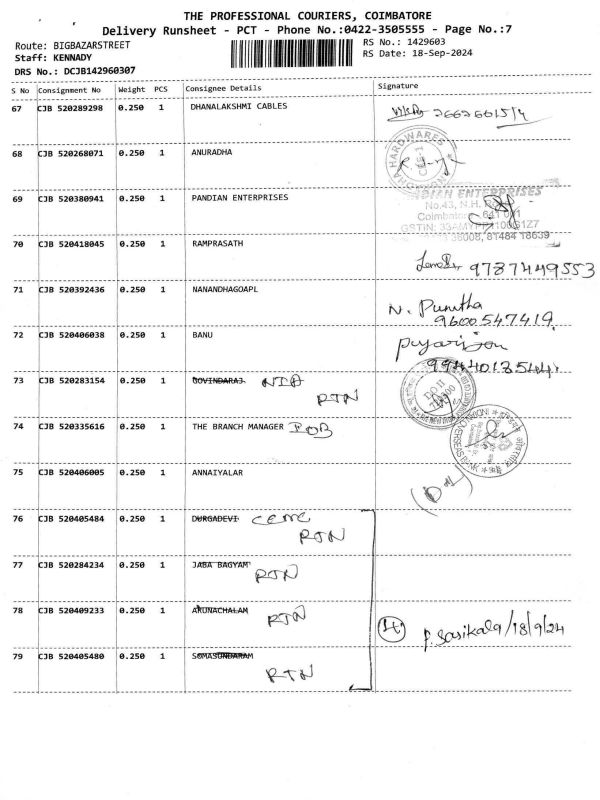 THE PROFESSIONAL COURIERS, COIMBATORE
Delivery Runsheet - PCT - Phone No.:0422-3505555 - Page No.:7
Route: BIGBAZARSTREET
RS No.: 1429603
Staff: KENNADY
RS Date: 18-Sep-2024
DRS No.: DCJB142960307
S No Consignment No Weight PCS Consignee Details Signature
67 CJB 520289298 0.250 1 DHANALAKSHMI CABLES
68 CJB 520268071 0.250 1 ANURADHA
HARDWARES
69 CJB 520380941 0.250 1 PANDIAN ENTERPRISES
INDIAN ENTERPRISES
No.43, N.H.
Coimbatore 641 001
70 CJB 520418045 0.250 1 RAMPRASATH
9787449553
71 CJB 520392436 0.250 1 NANANDHAGOAPL
N. Punitha
9600547419
72 CJB 520406038 0.250 1 BANU
73 CJB 520283154 0.250 1 GOVINDARAJ NIA
RTN
74 CJB 520335616 0.250 1 THE BRANCH MANAGER IOB
75 CJB 520406005 0.250 1 ANNAIYALAR
76 CJB 520405484 0.250 1 DURGADEVI
RTN
77 CJB 520284234 0.250 1 JABA BAGYAM
RTN
78 CJB 520409233 0.250 1 ARUNACHALAM
RTN
P. Sasikala/18/9/24
79 CJB 520405480 0.250 1 SOMASUNDARAM
RTN